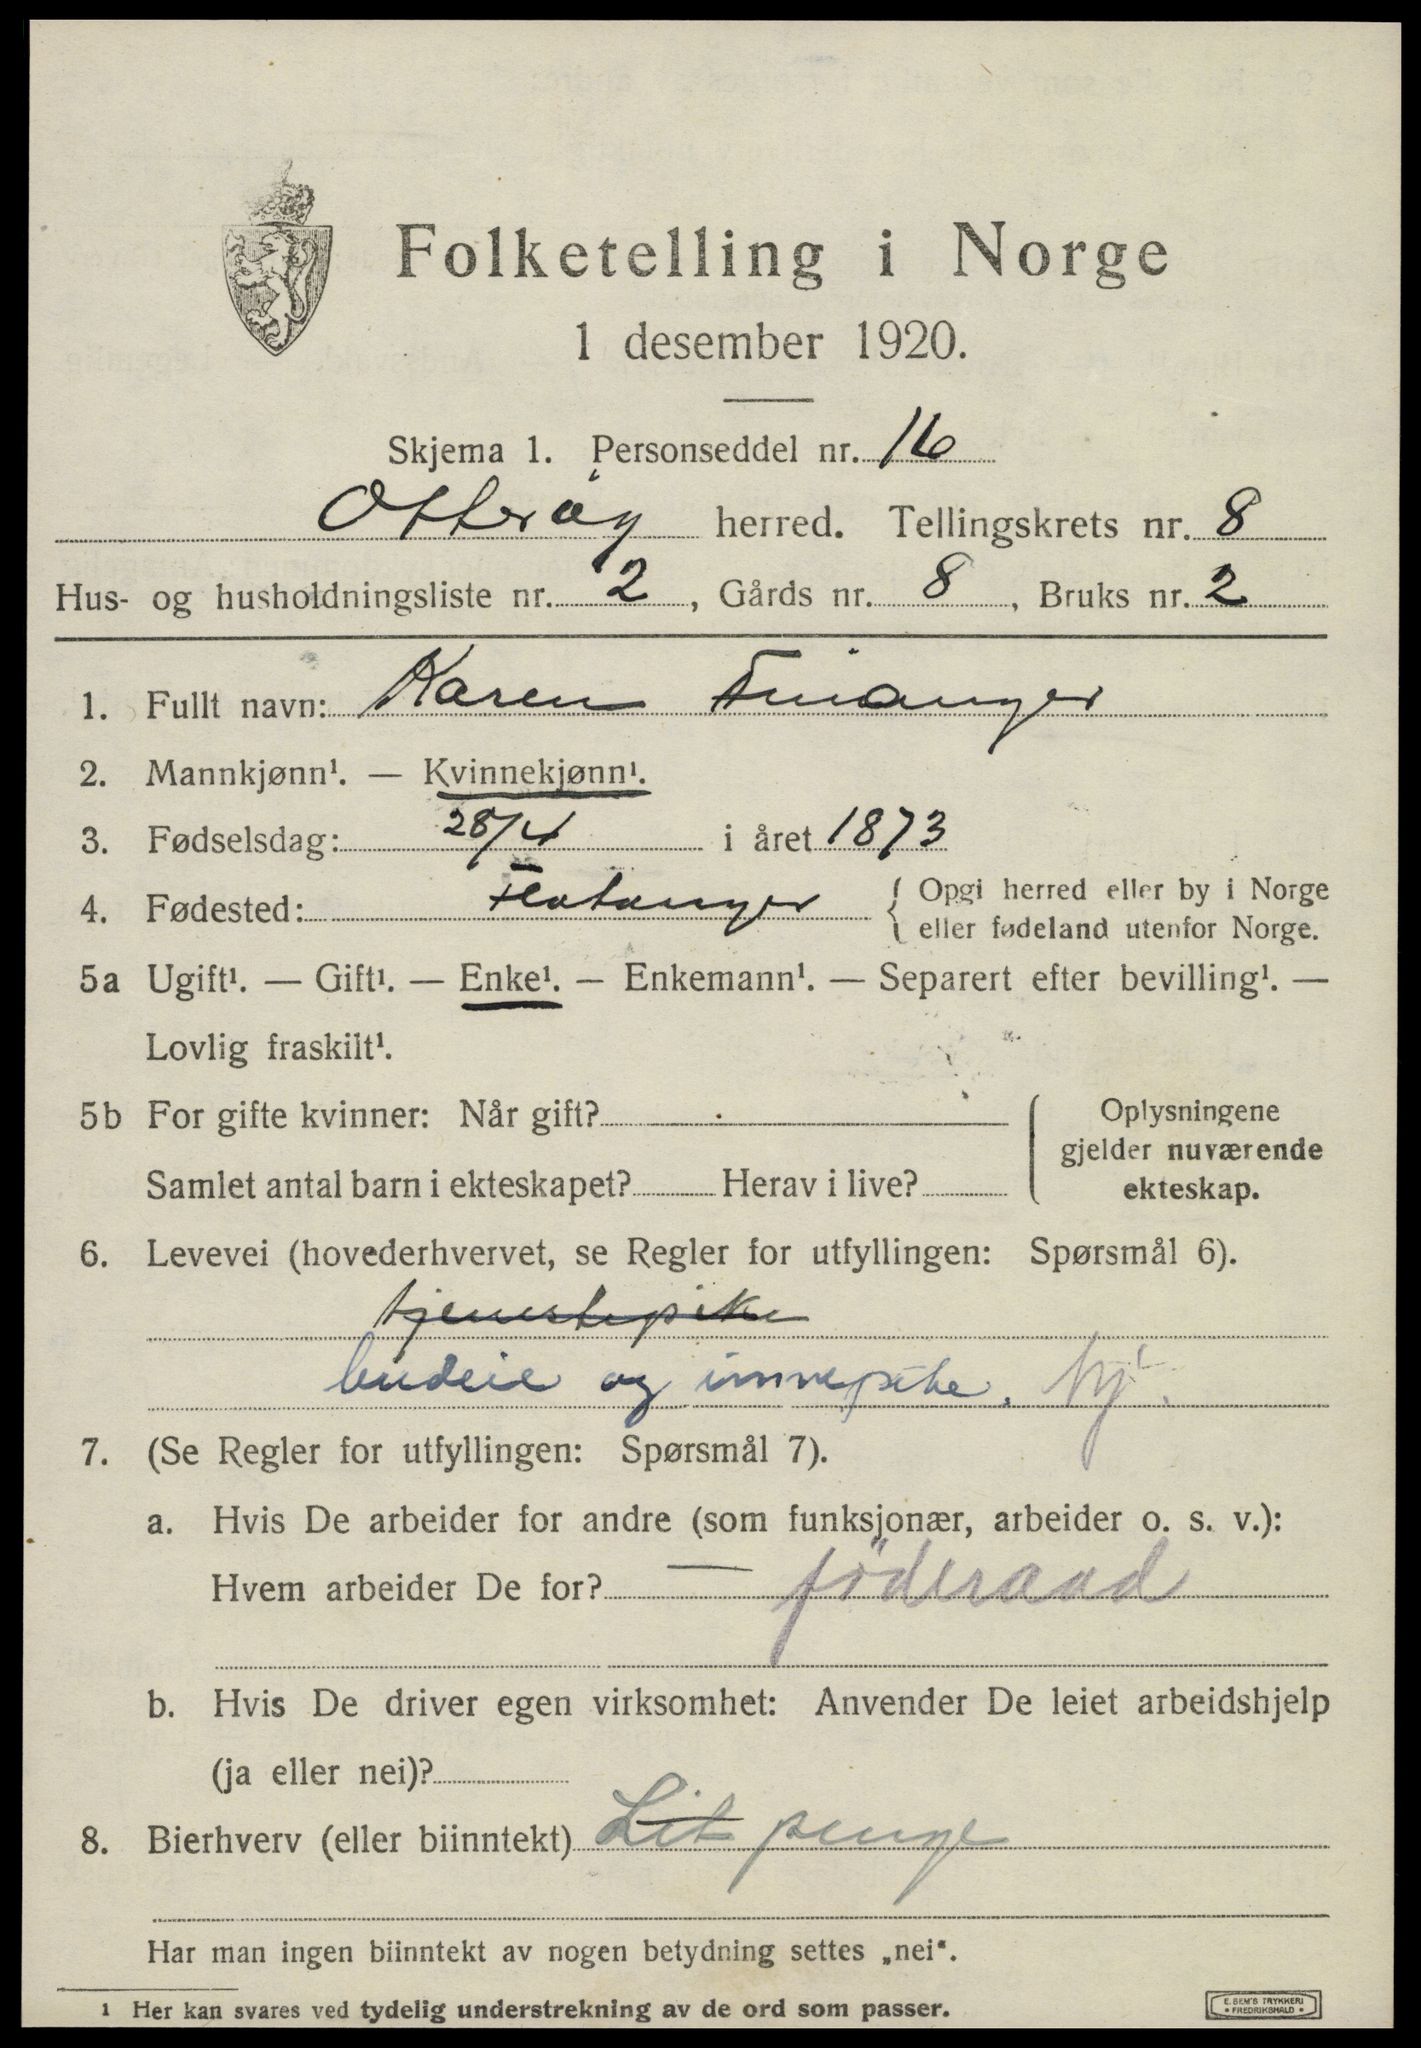 Folketelling i Norge
1 desember 1920.
Skjema 1. Personseddel nr. 16
Otterøy herred. Tellingskrets nr. 8
Hus- og husholdningsliste nr. 2, Gårds nr. 8, Bruks nr. 2
1. Fullt navn: Karen Finanger
2. Mannkjønn¹. — Kvinnekjønn¹.
3. Fødselsdag: 28/4 i året 1873
4. Fødested: Flatanger { Opgi herred eller by i Norge
eller fødeland utenfor Norge.
5a Ugift¹. — Gift¹. — Enke¹. — Enkemann¹. — Separert efter bevilling¹. —
Lovlig fraskilt¹.
5b For gifte kvinner: Når gift?
Samlet antal barn i ekteskapet? Herav i live?
Oplysningene
gjelder nuværende
ekteskap.
6. Levevei (hovederhvervet, se Regler for utfyllingen: Spørsmål 6).
tjenestepike
budeie og innepike.
7. (Se Regler for utfyllingen: Spørsmål 7).
a. Hvis De arbeider for andre (som funksjonær, arbeider o. s. v.):
Hvem arbeider De for? — föderaad
b. Hvis De driver egen virksomhet: Anvender De leiet arbeidshjelp
(ja eller nei)?
8. Bierhverv (eller biinntekt) Lit penge
Har man ingen biinntekt av nogen betydning settes „nei“.
1 Her kan svares ved tydelig understrekning av de ord som passer.
E. SEM'S TRYKKERI
• FREDRIKSHALD •